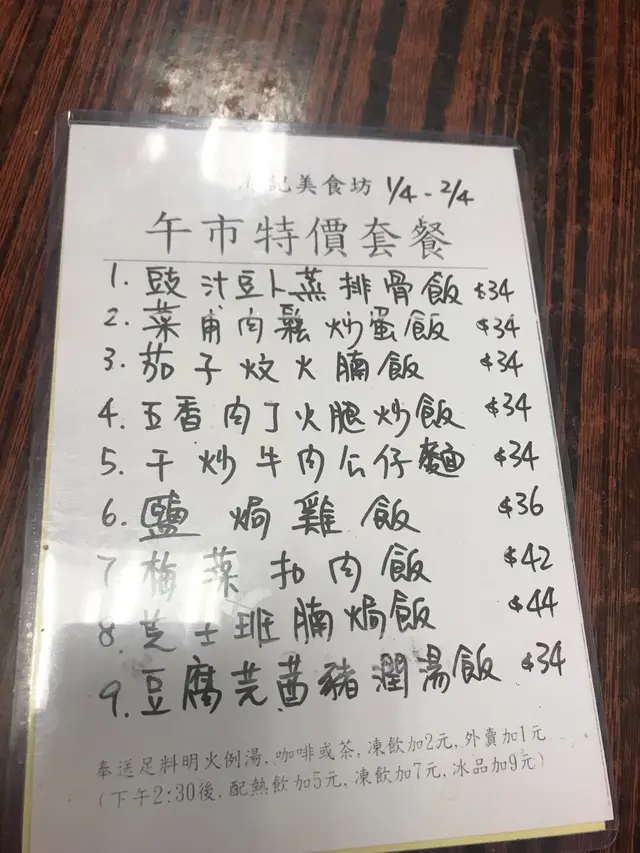 記美食坊 1/4 - 2/4
午市特價套餐
1. 豉汁豆卜蒸排骨飯 $34
2. 菜甫肉鬆炒蛋飯 $34
3. 茄子炆火腩飯 $34
4. 五香肉丁火腿炒飯 $34
5. 干炒牛肉公仔麵 $34
6. 鹽焗雞飯 $36
7 梅菜扣肉飯 $42
8. 芝士班腩焗飯 $44
9. 豆腐芫茜豬潤湯飯 $34
奉送足料明火例湯, 咖啡或茶, 凍飲加2元, 外賣加1元
(下午2:30後, 配熱飲加5元, 凍飲加7元, 冰品加9元)